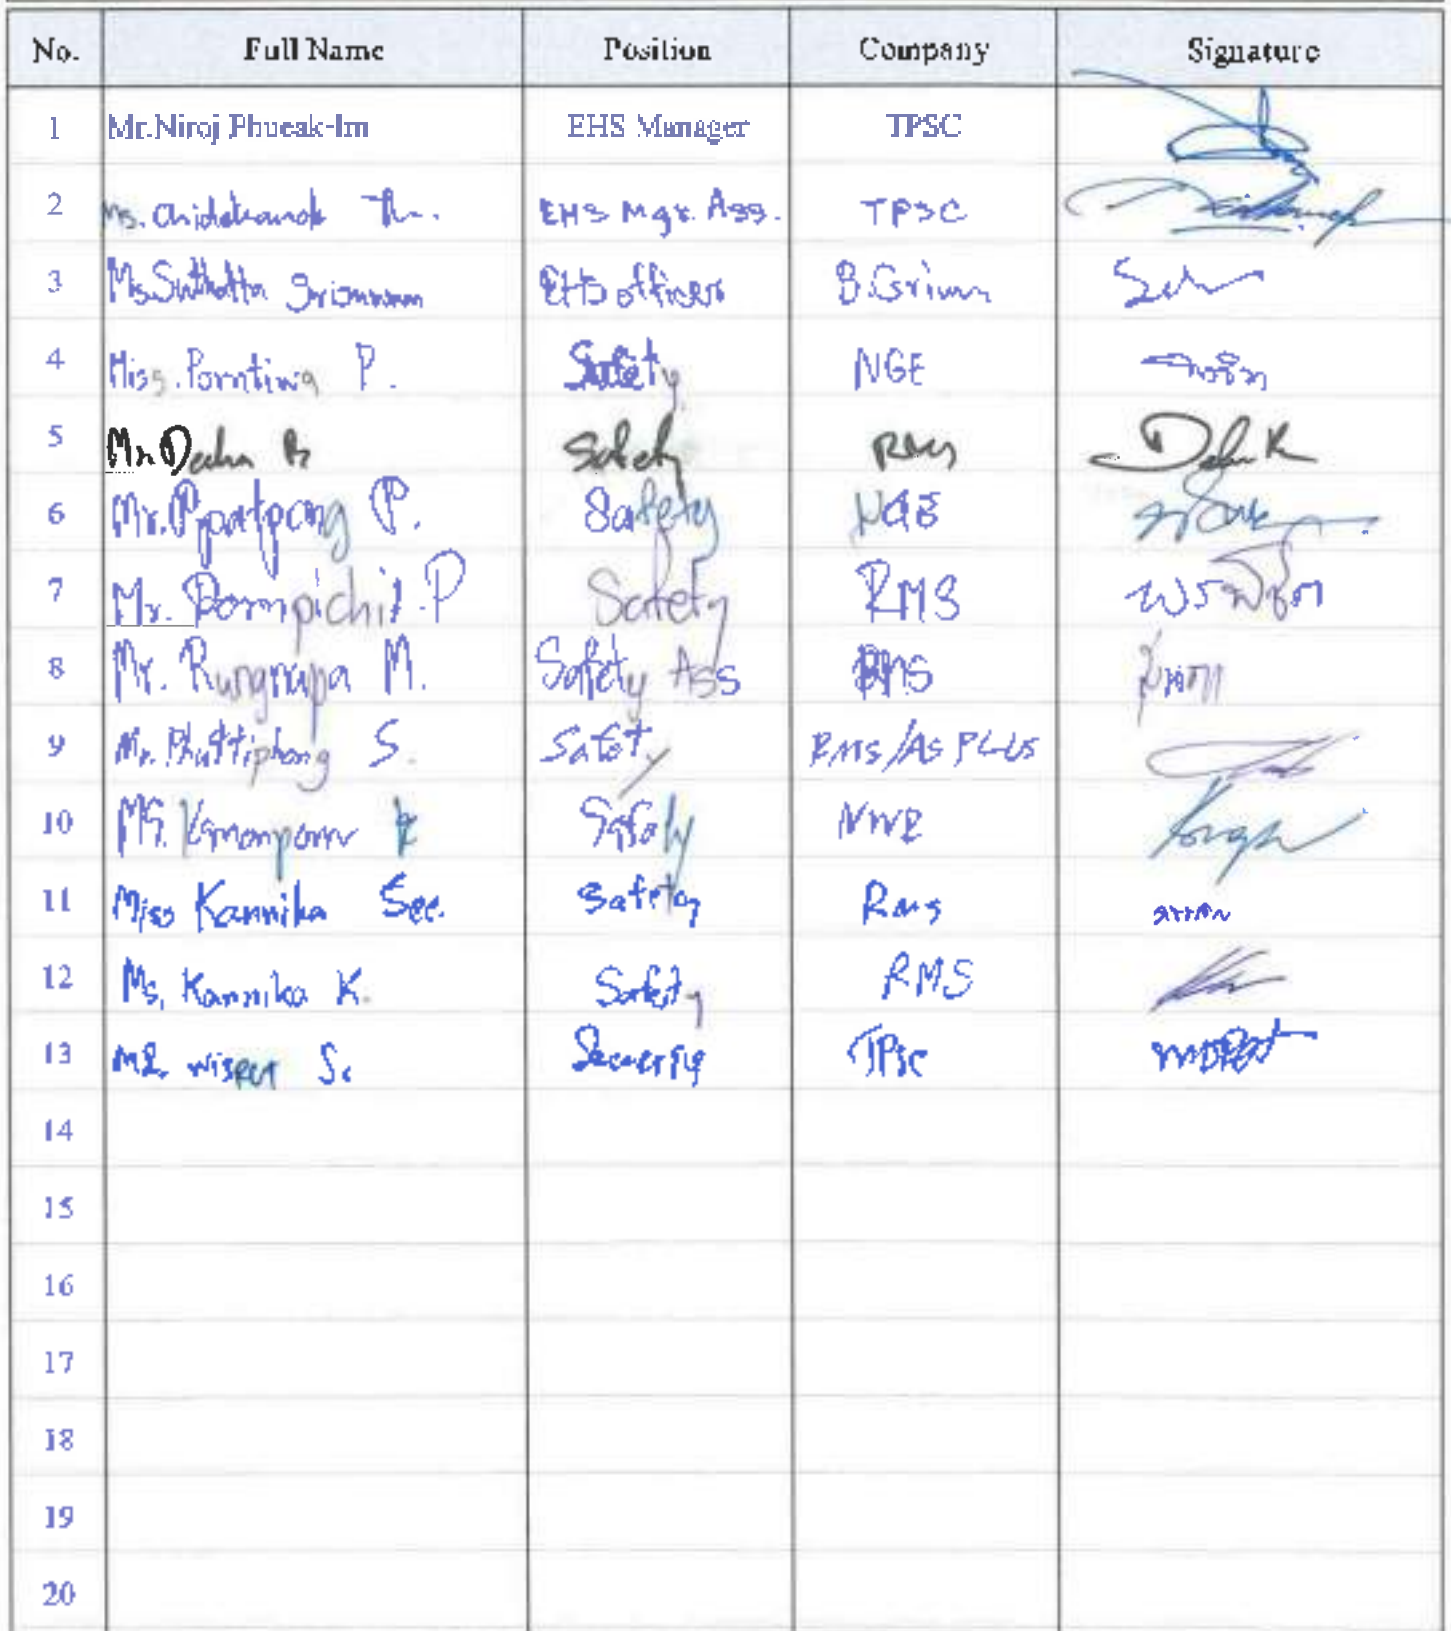 No. Full Name Position Company Signature
1 Mr.Niroj Phueak-Im EHS Manager TPSC
2 Ms. Chidchanok Th. EHS Mgr. Ass. TPSC
3 Ms. EHS officer B.Grimm
4 Miss. Porntiwa P. Safety NGE
5 Mr. Decha Safety RMS Decha K
6 Mr. P. Safety NGE
7 Mr. Pornpichit .P Safety RMS พรพิชิต
8 Mr. Rungnapa M. Safety Ass RMS
9 Mr. Phuttiphong S. Safety RMS/AS PLUS
10 MS. Kamonporn K Safety
11 Miss Kannika See. Safety RMS
12 Ms. Kannika K. Safety RMS
13 MR. WISRUT S. Security TPSC
14
15
16
17
18
19
20